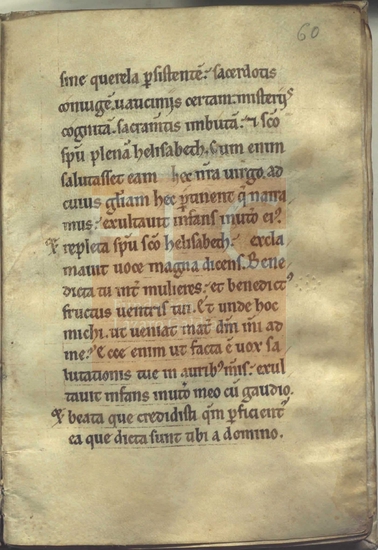 60
sine querela ꝑsistentē. sacerdotis
coniugē. uaticiniis certam. misteriis
cognitā. sacramtis imbutā. ⁊ sc̄o
spū plenā helisabeth. Cum enim
salutasset eam hec nr̄a uirgo. ad
cuius gl̄iam hec ꝑtinent q̄ narra
mus. exultauit infans inutō ei⁹.
⁊ repleta spū sc̄o helisabeth. excla
mauit uoce magna dicens. Bene
dicta tu int̄ mulieres. et benedict⁹
fructus uentris tui. Et unde hoc
michi. ut ueniat mat̄ dn̄i mi ad
me. Ecce enim ut facta ē uox sa
lutationis tue in aurib⁹ m̄is. exul
tauit infans inutō meo cū gaudio.
⁊ beata que credidisti qm̄ ꝑficient᷑
ea que dicta sunt tibi a domino.